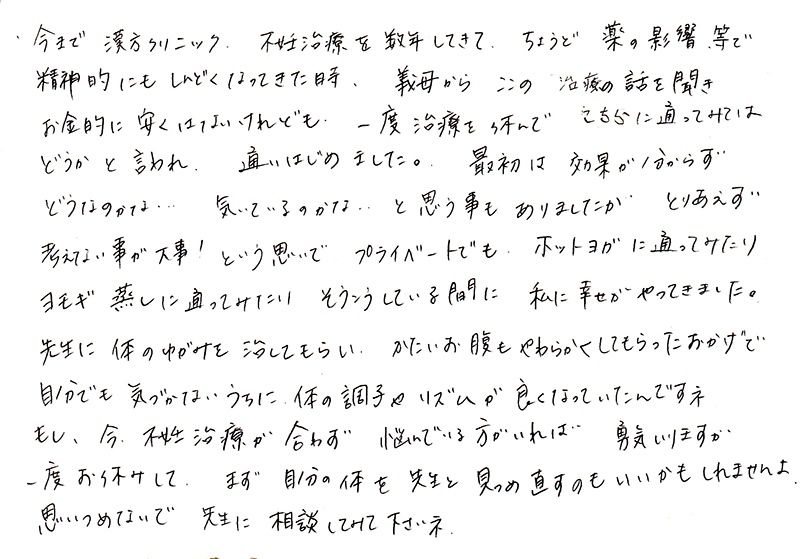 今まで 漢方クリニック、不妊治療を数年してきて、ちょうど 薬の影響等で
精神的にもしんどくなってきた時、義母から ここの 治療の話を聞き
お金的に 安くはないけれども、一度治療を休んで こちらに通ってみては
どうかと言われ、通いはじめました。最初は 効果が分からず
どうなのかな… 気いているのかな… と思う事も ありましたが とりあえず
考えない事が大事！という思いで プライベートでも、ホットヨガに通ってみたり
ヨモギ蒸しに通ってみたり そうこうしている間に 私に幸せがやってきました。
先生に 体のゆがみを治してもらい、かたいお腹もやわらかくしてもらったおかげで
自分でも 気づかないうちに、体の調子やリズムが良くなっていたんですネ
もし、今、不妊治療が合わず 悩んでいる方がいれば 勇気いりますが
一度お休みして、まず 自分の体を 先生と見つめ直すのもいいかもしれませんよ
思いつめないで 先生に 相談してみて下さいネ。